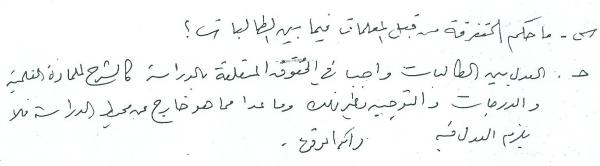 س - ما حكم التفرقة من قبل المعلمات فيما بين الطالبات ؟
ج . العدل بين الطالبات واجب في الحقوق المتعلقة بالدراسة كالشرح للمادة العلمية
والدرجات والتوجيه ونظير ذلك وما عدا مما هو خارج عن محيط الدراسة فلا
يلزم العدل فيه